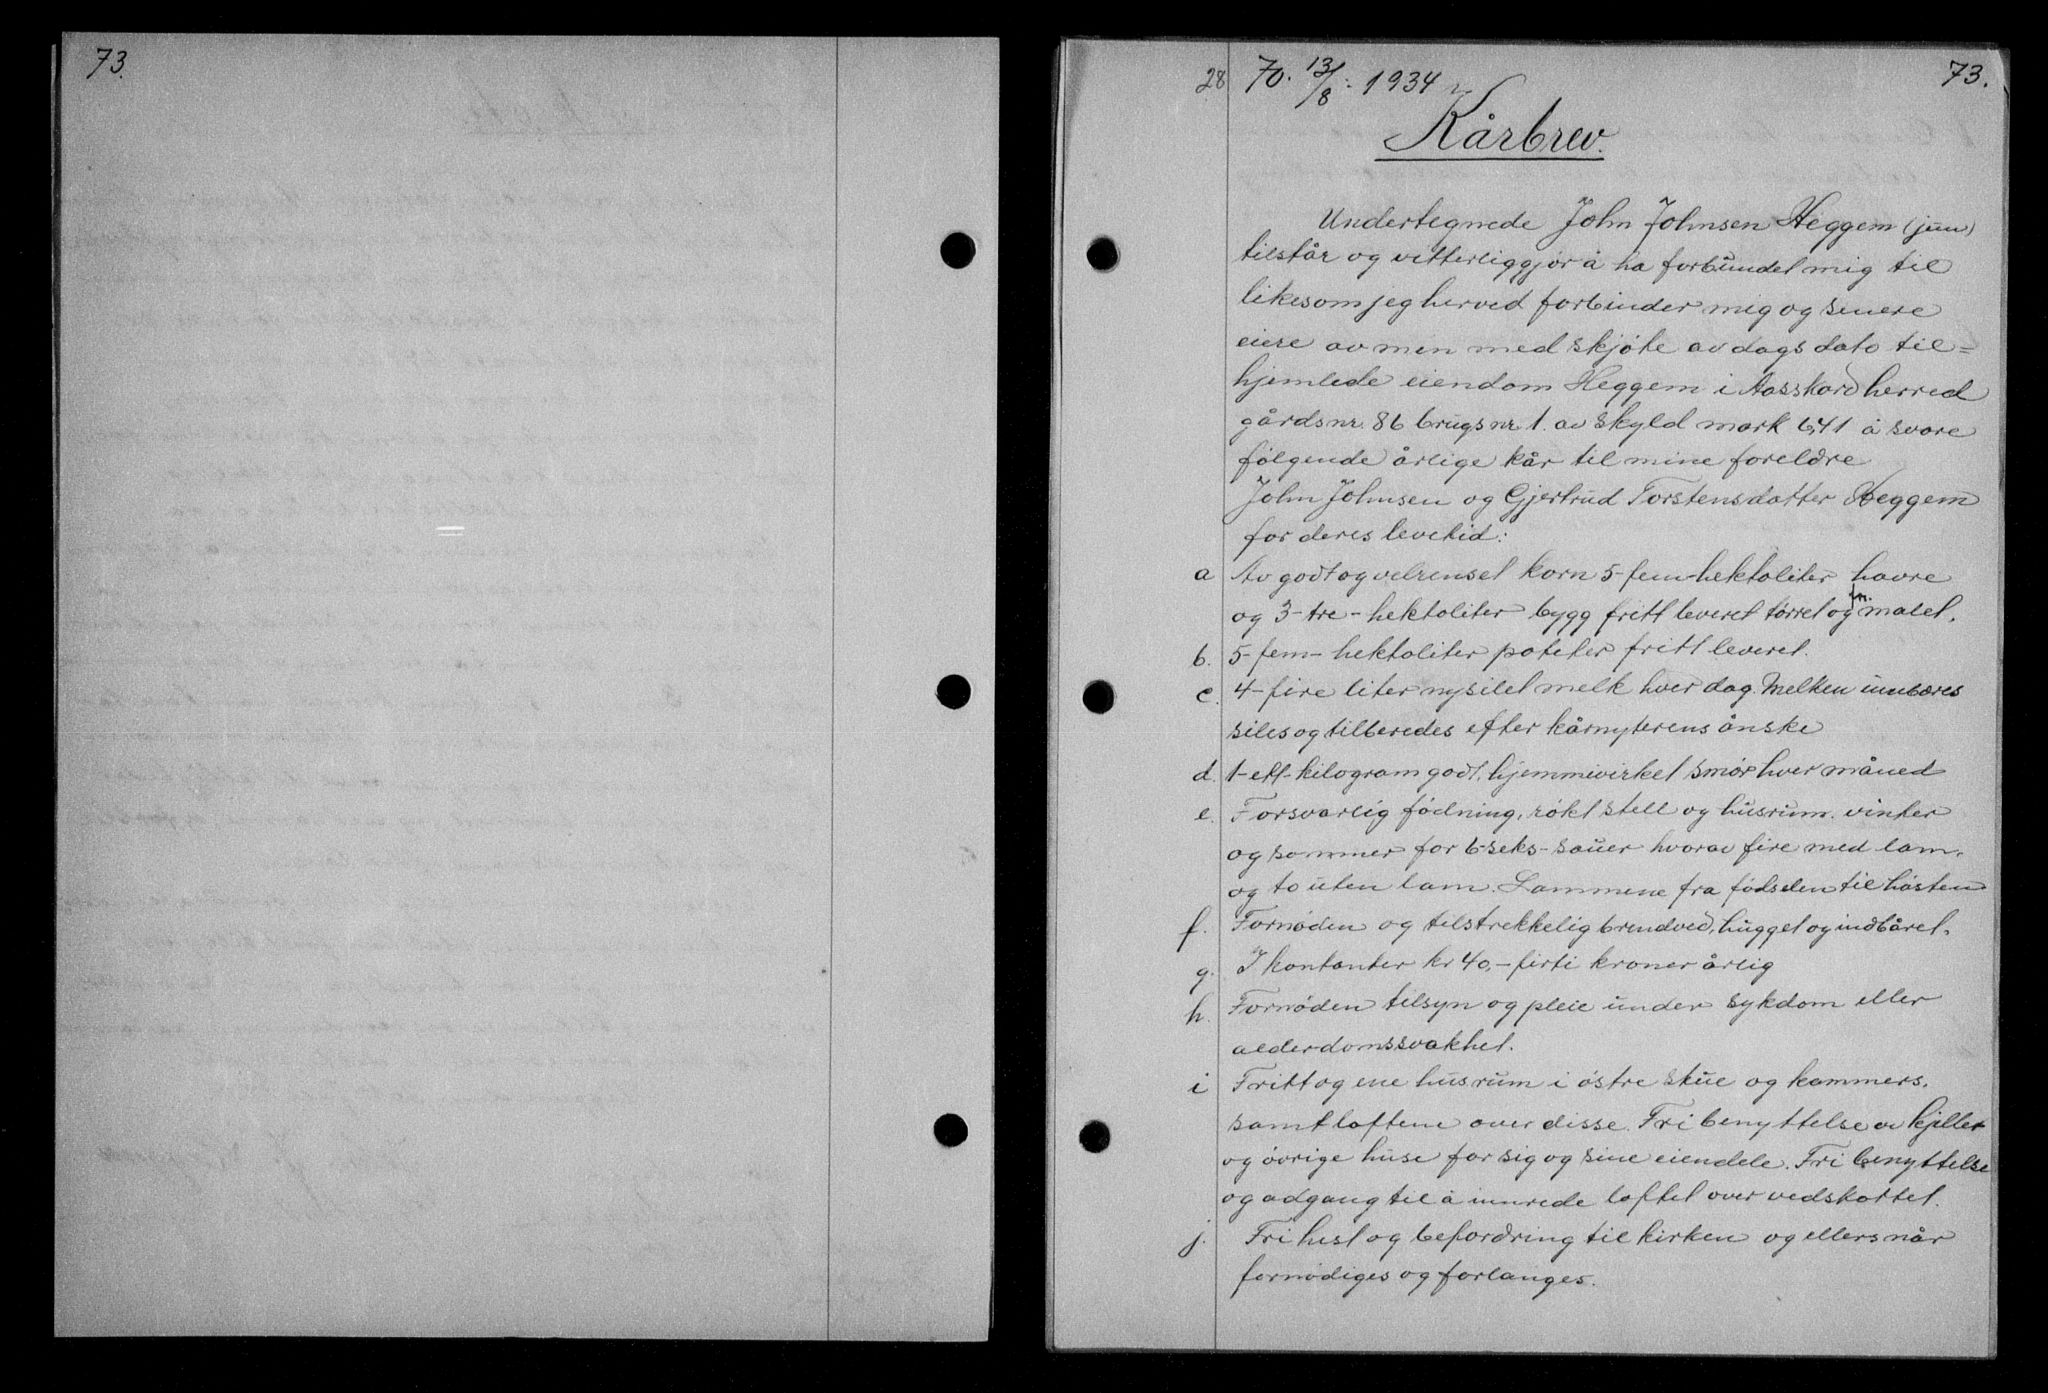 73.
28 70. 13/8. 1934 73.
Kårbrev.
Undertegnede John Johnsen Heggem (jun)
tilstår og vitterliggjør å ha forbundet mig til
likesom jeg herved forbinder mig og senere
eiere av min med skjøte av dags dato til=
hjemlede eiendom Heggem i Aasskard herred
gårdsnr. 86 brugsnr 1. av skyld mark 6,41 å svare
følgende årlige kår til mine foreldre
John Johnsen og Gjertrud Torstensdatter Heggem
for deres levetid:
a Av godt og velrenset korn 5-fem-hektoliter havre
og 3-tre-hektoliter bygg fritt leveret tørret og malet.
b. 5-fem-hektoliter poteter fritt leveret.
c. 4-fire liter nysilet melk hver dag. Melken innbæres
siles og tilberedes efter kårnyterens ønske
d. 1-ett-kilogram godt, hjemmevirket smør hver måned
e. Forsvarlig fødning, røkt stell og husrum. vinter
og sommer for 6-seks-sauer hvorav fire med lam,
og to uten lam. Lammene fra fødselen til høsten
f. Fornøden og tilstrekkelig brendved, hugget og indbåret.
g. I kontanter kr 40,- firti kroner årlig
h. Fornøden tilsyn og pleie under sykdom eller
alderdomssvakhet.
i Fritt og ene husrum i østre stue og kammers.
samt loftene over disse. Fri benyttelse av kjeller
og øvrige huse for sig og sine eiendele. Fri benyttelse
og adgang til å innrede loftet over vedskottet.
j. Fri hest og befordring til kirken og ellers når
fornødiges og forlanges.